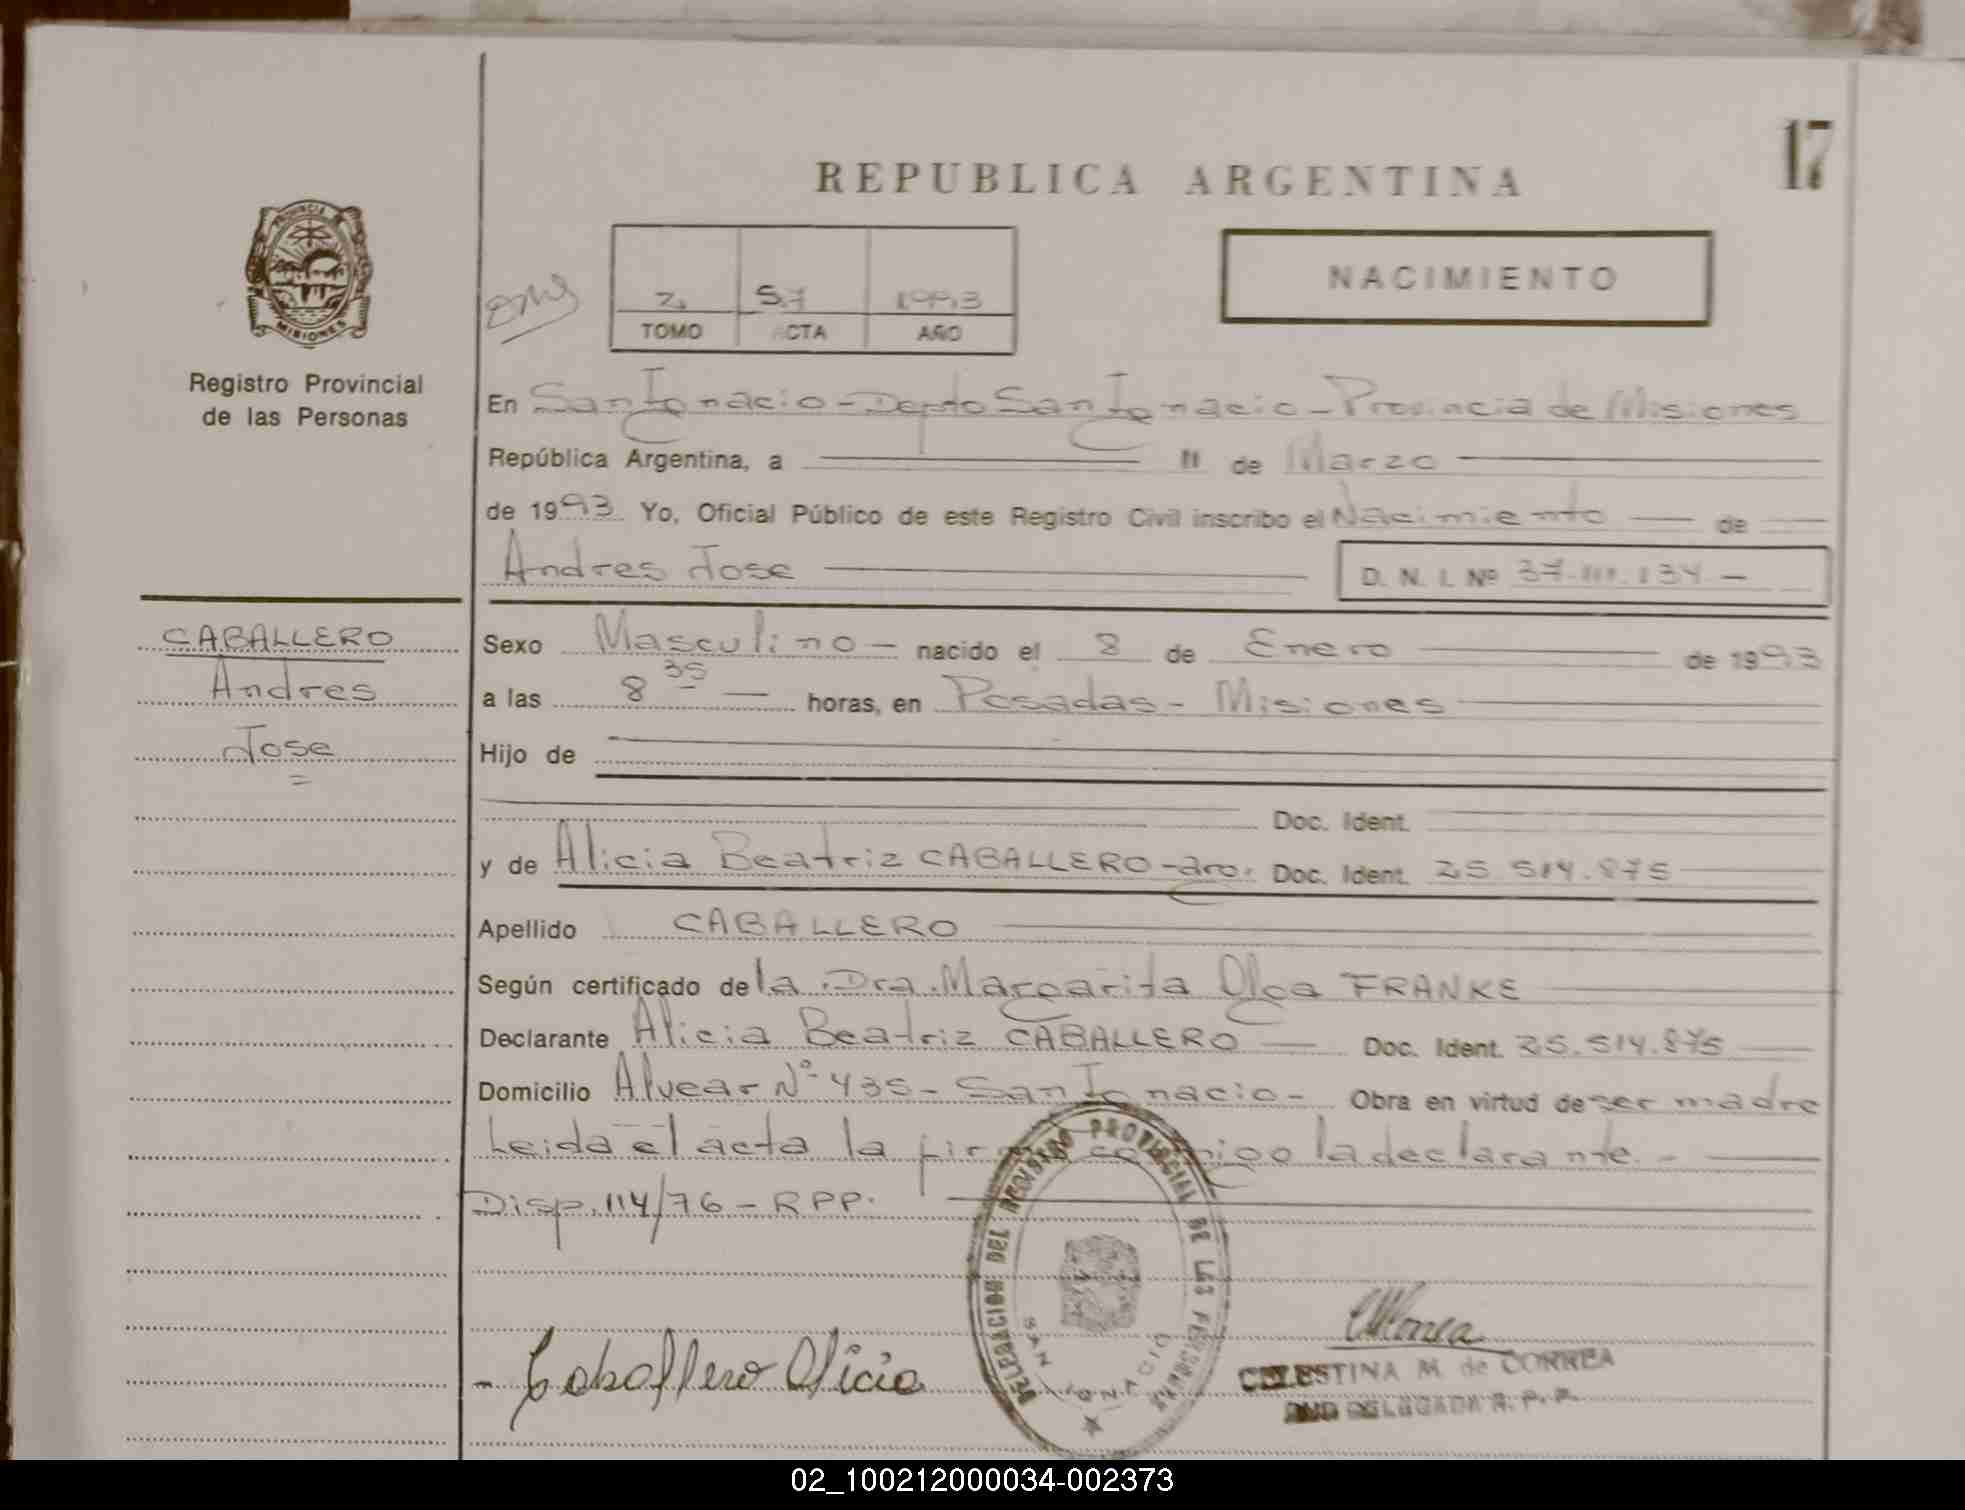 17
REPUBLICA ARGENTINA
PROVINCIA DE
MISIONES
Registro Provincial
de las Personas
NACIMIENTO
2 57 1993
TOMO ACTA AÑO
En San Ignacio - Depto San Ignacio - Provincia de Misiones
República Argentina, a 11 de Marzo
de 1993 Yo, Oficial Público de este Registro Civil inscribo el Nacimiento de
Andres Jose D. N. I. Nº 37.111.134 -
CABALLERO
Andres
Jose
Sexo Masculino - nacido el 8 de Enero de 1993
a las 8 35 horas, en Posadas - Misiones
Hijo de
Doc. Ident.
y de Alicia Beatriz CABALLERO - arg. Doc. Ident. 25.514.875
Apellido CABALLERO
Según certificado de la Dra. Margarita Olga FRANKE
Declarante Alicia Beatriz CABALLERO Doc. Ident. 25.514.875
Domicilio Alvear Nº 435 - San Ignacio - Obra en virtud de ser madre
Leida el acta la firma conmigo la declarante. -
Disp. 114/76 - RPP.
DELEGACION DEL REGISTRO PROVINCIAL DE LAS PERSONAS
SAN IGNACIO
- Caballero Alicia
CELESTINA M. de CORREA
DELEGADA R. P. P.
02_100212000034-002373